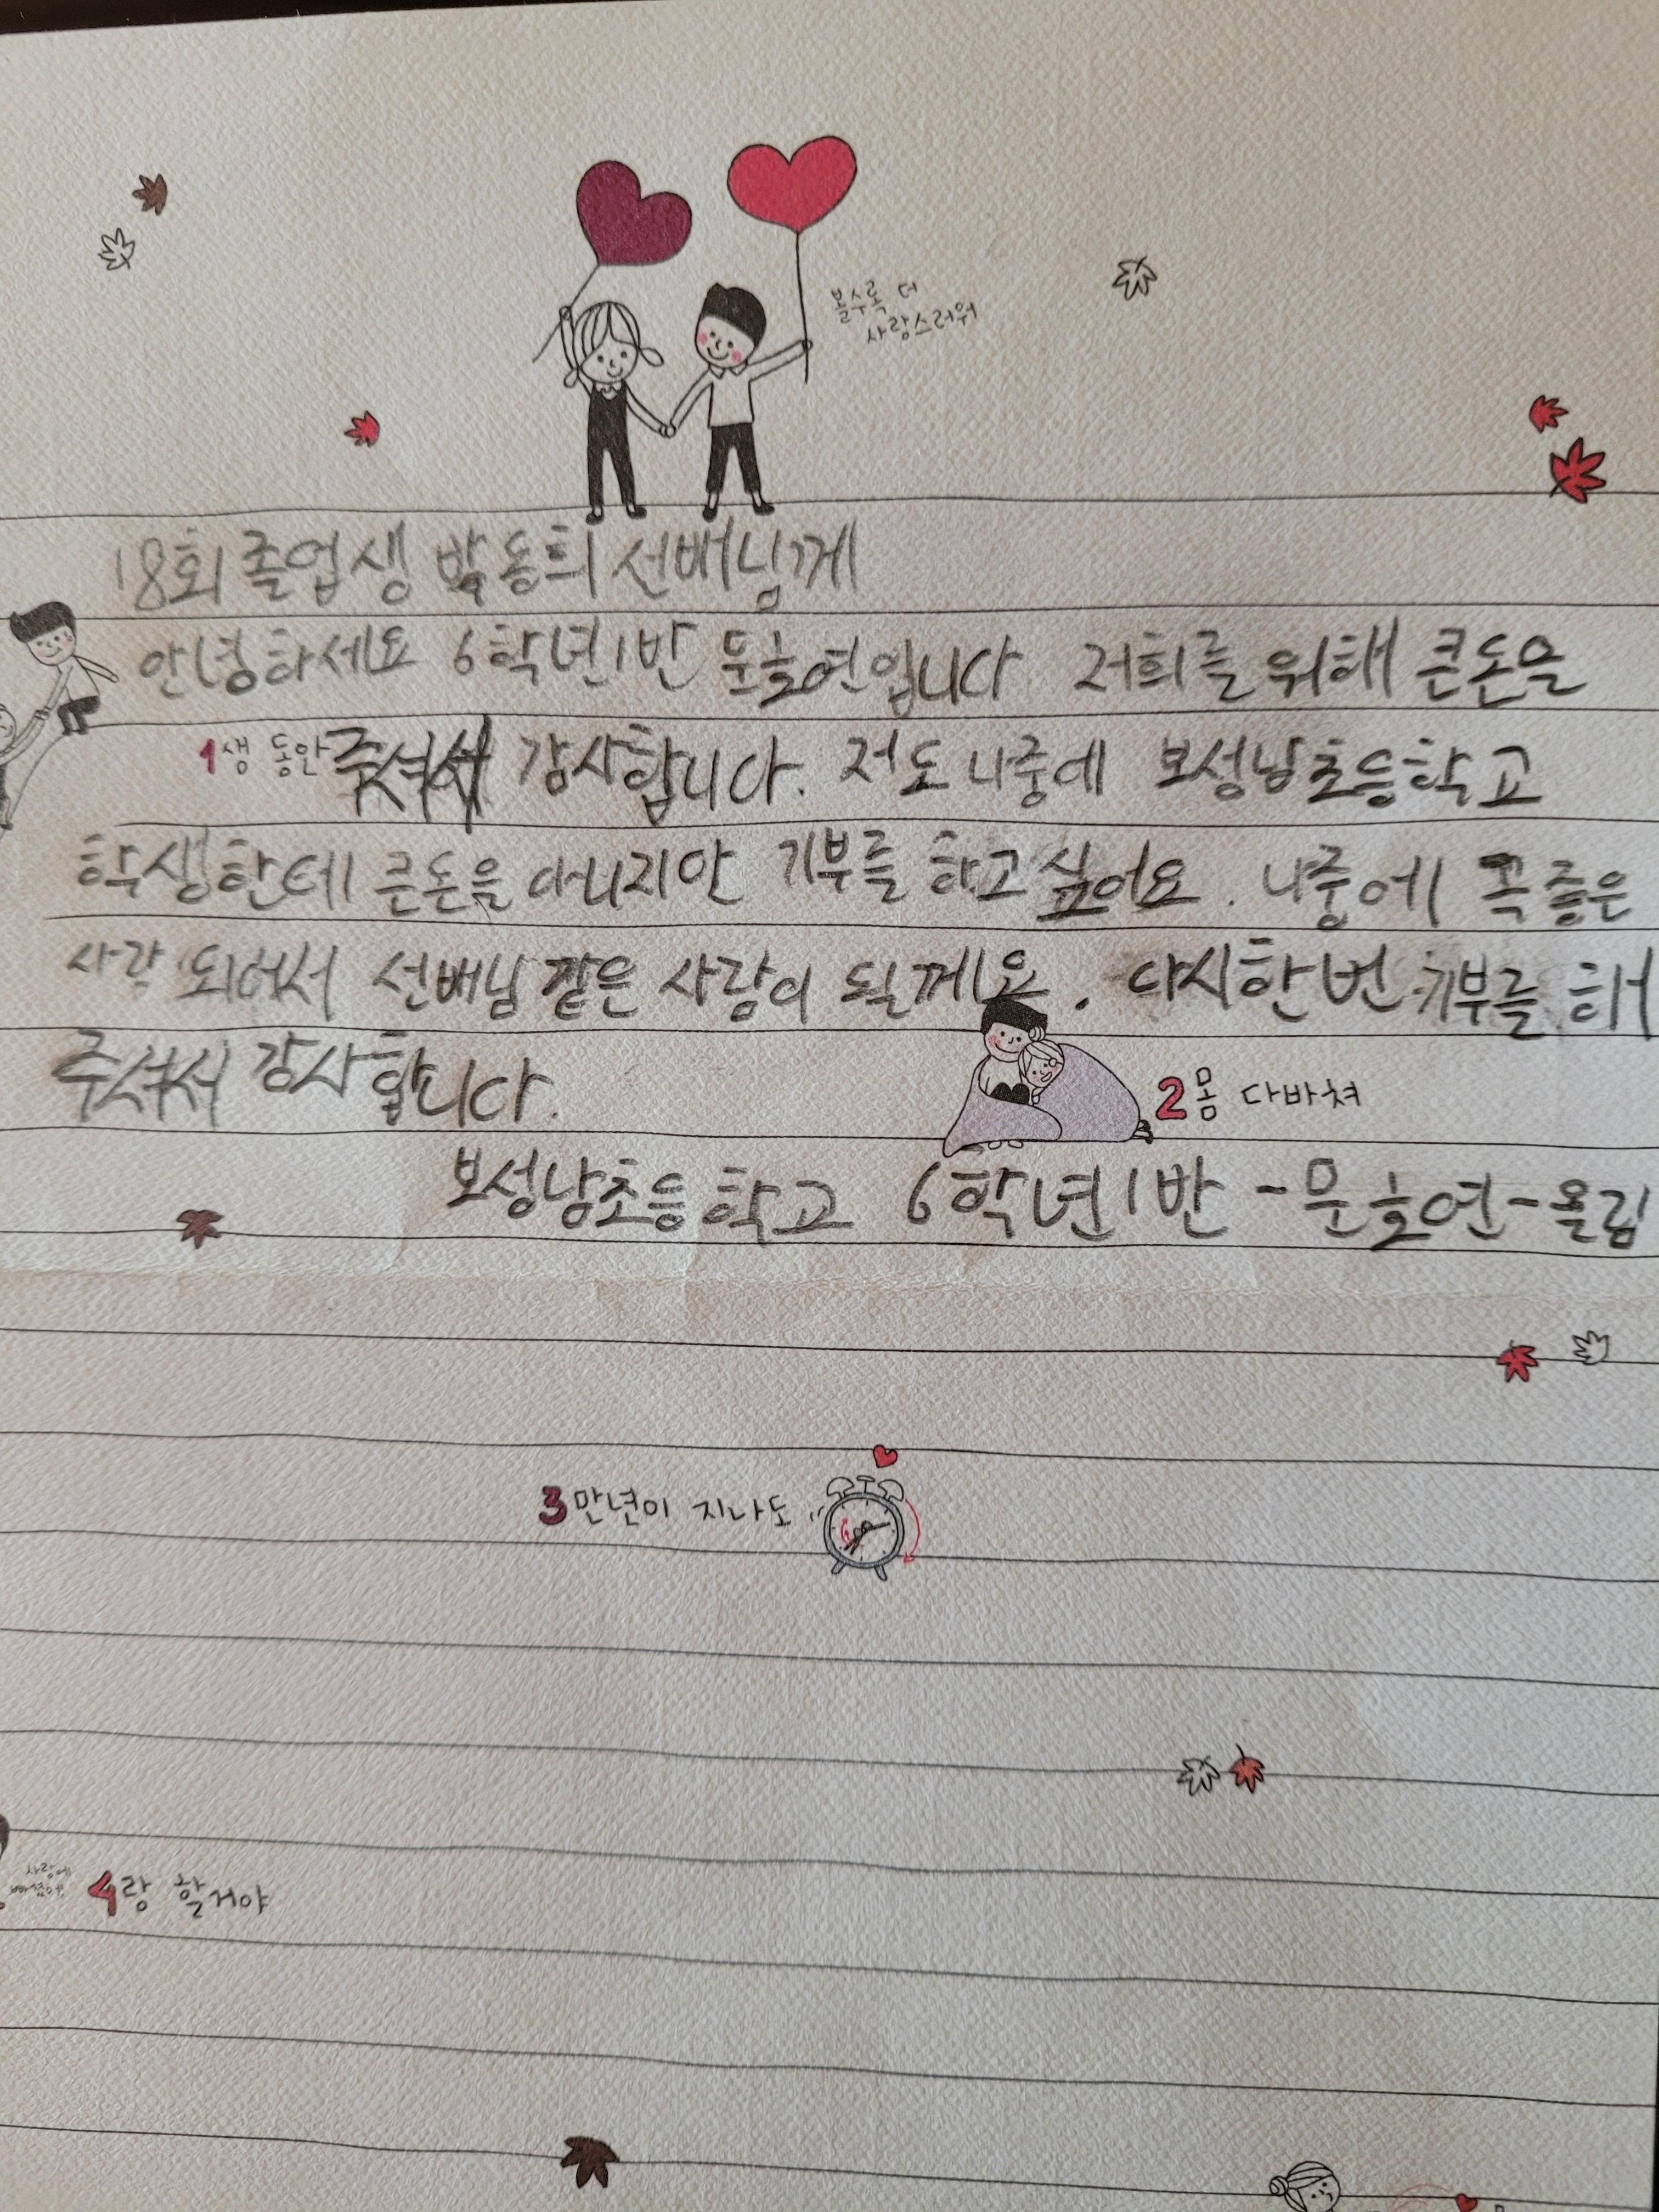 볼수록 더
사랑스러워
18회 졸업생 박동희 선배님께
안녕하세요 6학년1반 문늘연입니다 저희를 위해 큰돈을
1생 동안
주셔서 감사합니다. 저도 나중에 보성남초등학교
학생한테 큰돈을 아니지만 기부를 하고싶어요. 나중에 꼭 좋은
사람 되어서 선배님 같은 사람이 될께요. 다시한번 기부를 해
주셔서 감사합니다.
2몸 다바쳐
보성남초등학교 6학년1반 -문늘연-올림
3만년이 지나도
4랑 할거야